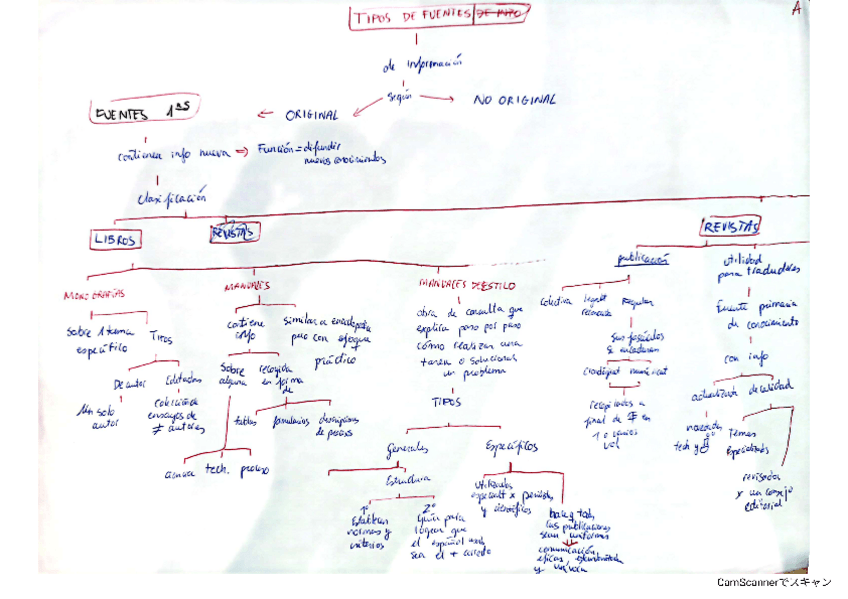 TIPOS DE FUENTES DE INFO
A
de información
según
ORIGINAL
NO ORIGINAL
FUENTES 1ªS
contienen info nueva => Función = difundir
nuevos conocimientos
Clasificación
LIBROS
REVISTAS
REVISTAS
MONOGRAFÍAS
MANUALES
MANUALES DE ESTILO
publicación
utilidad
para traductores
sobre 1 tema
específico
Tipos
De autor
Editadas
Un solo
autor
colección de
ensayos de
≠ autores
contiene
info
similar a enciclopedia
pero con enfoque
práctico
sobre
alguna
recogida
en forma
de
tablas
formularios
descripciones
de
ciencia
tech.
proceso
obra de consulta que
explica paso por paso
cómo realizar una
tarea o solucionar
un problema
TIPOS
Generales
Específicos
Estructura
1º
Establecen
normas y
criterios
2º
Guía para
lograr que
el español
sea el + correcto
utilizados
x
y científicos
las publicaciones
sean uniformes
comunicación
eficaz
y
colectiva
regular
sus fascículos
se encadenan
recopilados a
final de
en
1 o varios
vol
Fuente primaria
de conocimiento
con info
actualizada
de calidad
novedades
tech y
temas
especializados
revisados
x un consejo
editorial
CamScannerでスキャン